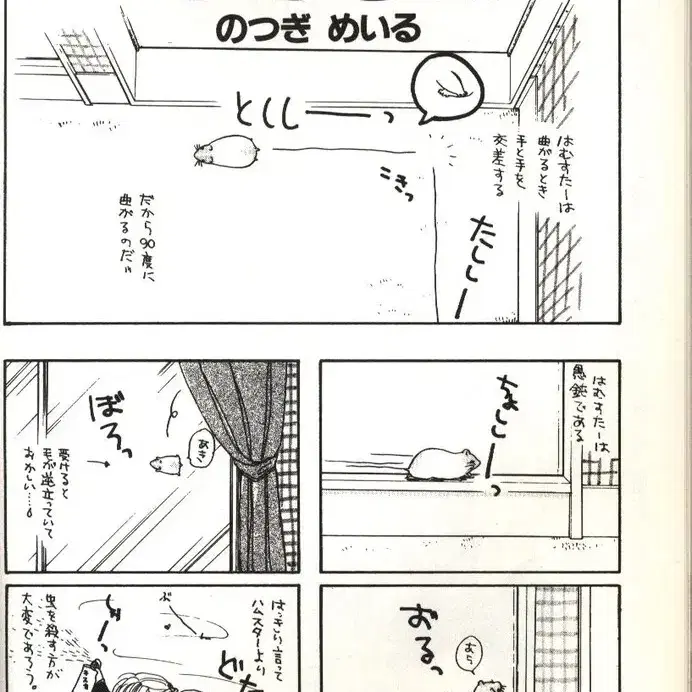 のつぎ めいる
はむすたーは
曲がるとき
手と手を
交差する
たししーー
こきっ
とししーーっ
だから90度に
曲がるのだ!!
はむすたーは
愚鈍である
ちょしーーっ
あき
ぼろっ
受けると
毛が逆立っていて
おかしい…
あら
おるっ
はっきり言って
ハムスターより
ぶーん
虫を殺す方が
大変であろう。